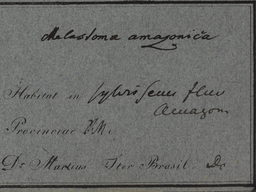 Melastoma amazonica
Habitat in sylvis secus flum
Amazon
Provinciae
Dr. Martius Iter Brasil. Dr